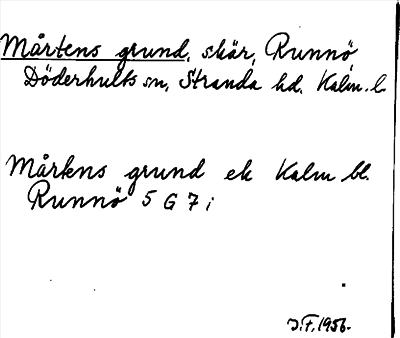 Mårtens grund, skär, Runnö
Döderhults sn, Stranda hd. Kalm. l.
Mårtens grund ek Kalm bl.
Runnö 5 G 7 i
J.F. 1956.